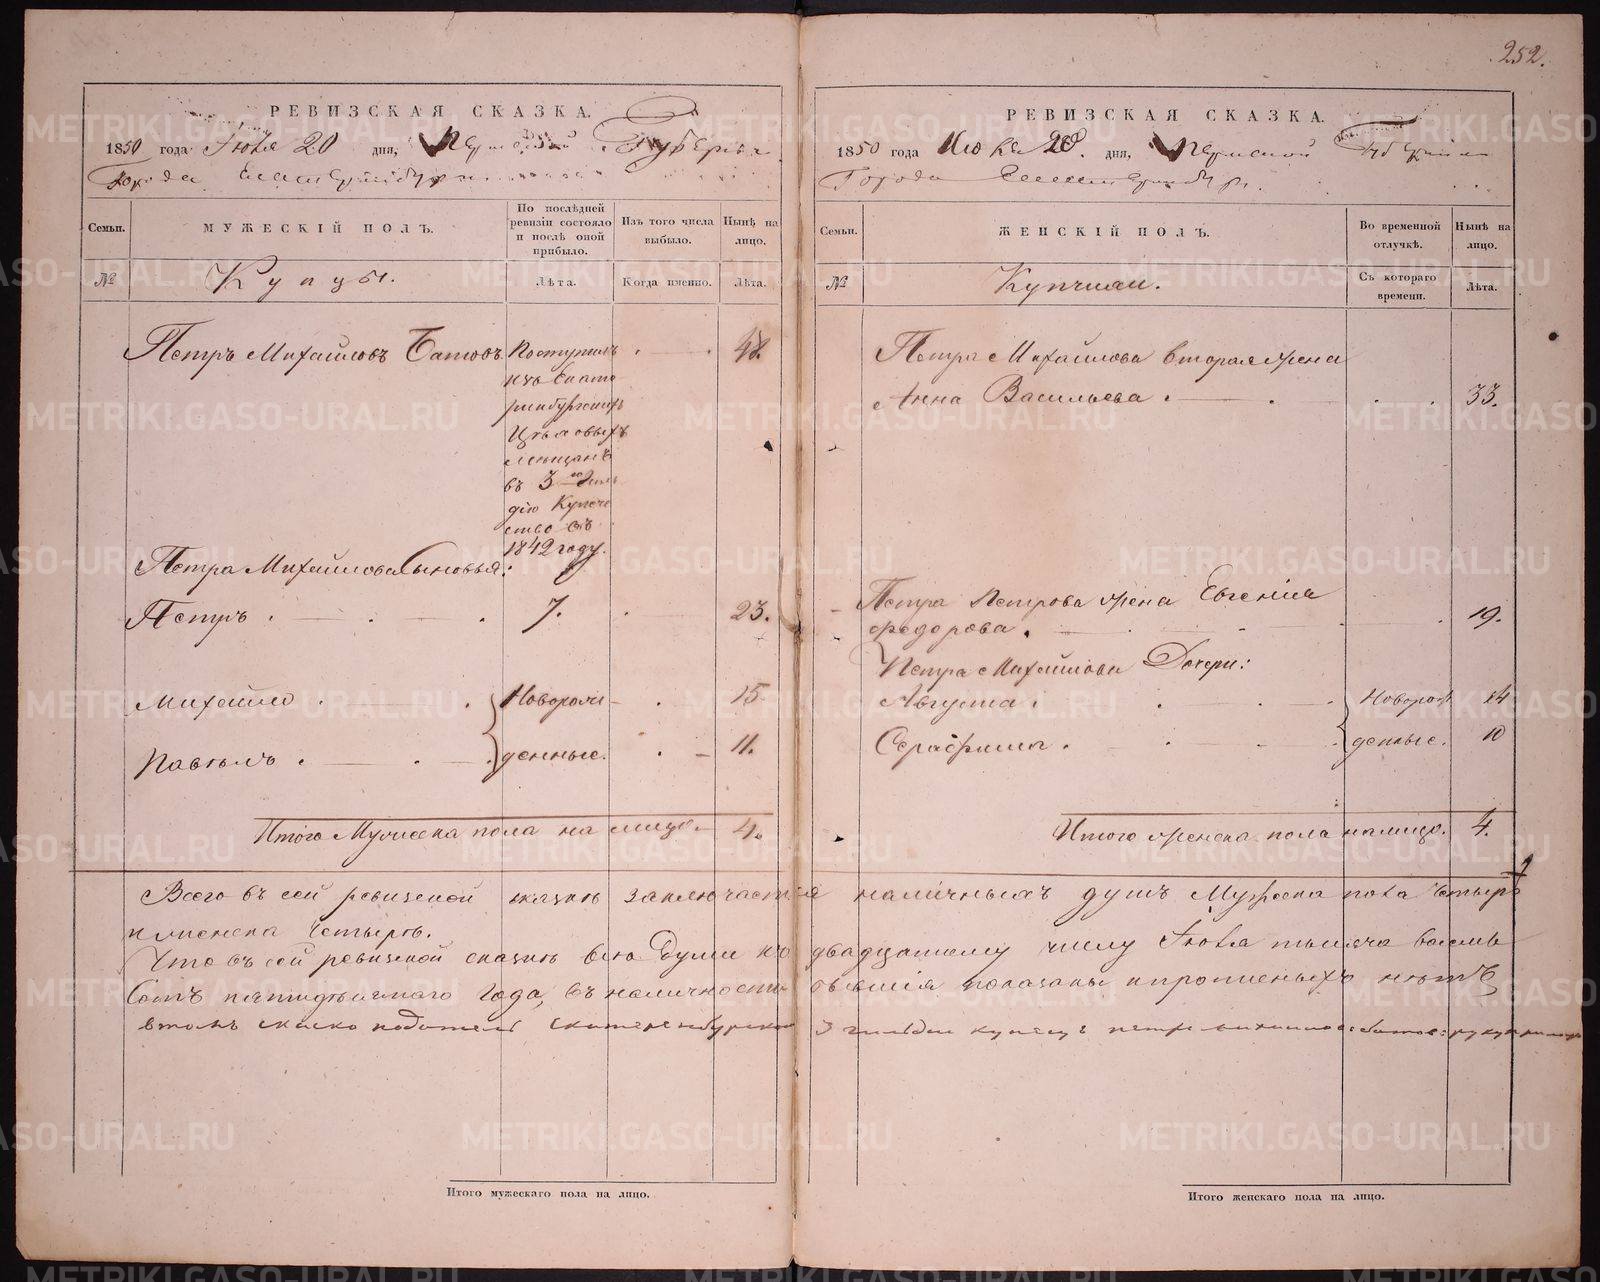 252.
РЕВИЗСКАЯ СКАЗКА.
1850 года Іюля 20 дня, Пермской Губерніи
Города Екатеринбурга
Семьи.
МУЖЕСКІЙ ПОЛЪ.
По послѣдней ревизіи состояло и послѣ оной прибыло.
Изъ того числа выбыло.
Нынѣ на лицо.
№
Купцы.
Лѣта.
Когда именно.
Лѣта.
Петръ Михайловъ Батовъ
Поступилъ
изъ Екате
ринбургскихъ
Цѣховыхъ
мещанъ
въ 3 ю Гиль
дію Купече
ство съ
1842 году.
48.
Петра Михайлова Сыновья:
Петръ 7. 23.
Михайло Новорож 15.
Павелъ денные. 11.
Итого Мужеска пола на лицо 4.
РЕВИЗСКАЯ СКАЗКА.
1850 года Июля 20. дня, Пермской Губерніи
Города Екатеринбурга
Семьи.
ЖЕНСКІЙ ПОЛЪ.
Во временной отлучкѣ.
Нынѣ на лицо.
№
Купчихи.
Съ котораго времени.
Лѣта.
Петра Михайлова вторая жена
Анна Васильева 33.
Петра Петрова жена Евгенія
Федорова. 19.
Петра Михайлова Дочери:
Августа Новорож 14
Серафима денные. 10
Итого женска пола налицо. 4.
Всего въ сей ревизской сказкѣ заключается наличныхъ душъ Мужеска пола четыре
и женска четыре.
Что въ сей ревизской сказкѣ всѣ Души къ двадцатому числу Іюля тысяча восемь
Сотъ пятидесятаго года, въ наличности бывшія показаны и прописныхъ нѣтъ
втомъ скаско податель екатеренбурской 3 гильдеи купецъ петръ михаиловъ батовъ руку приложилъ
Итого мужескаго пола на лицо.
Итого женскаго пола на лицо.
METRIKI.GASO-URAL.RU